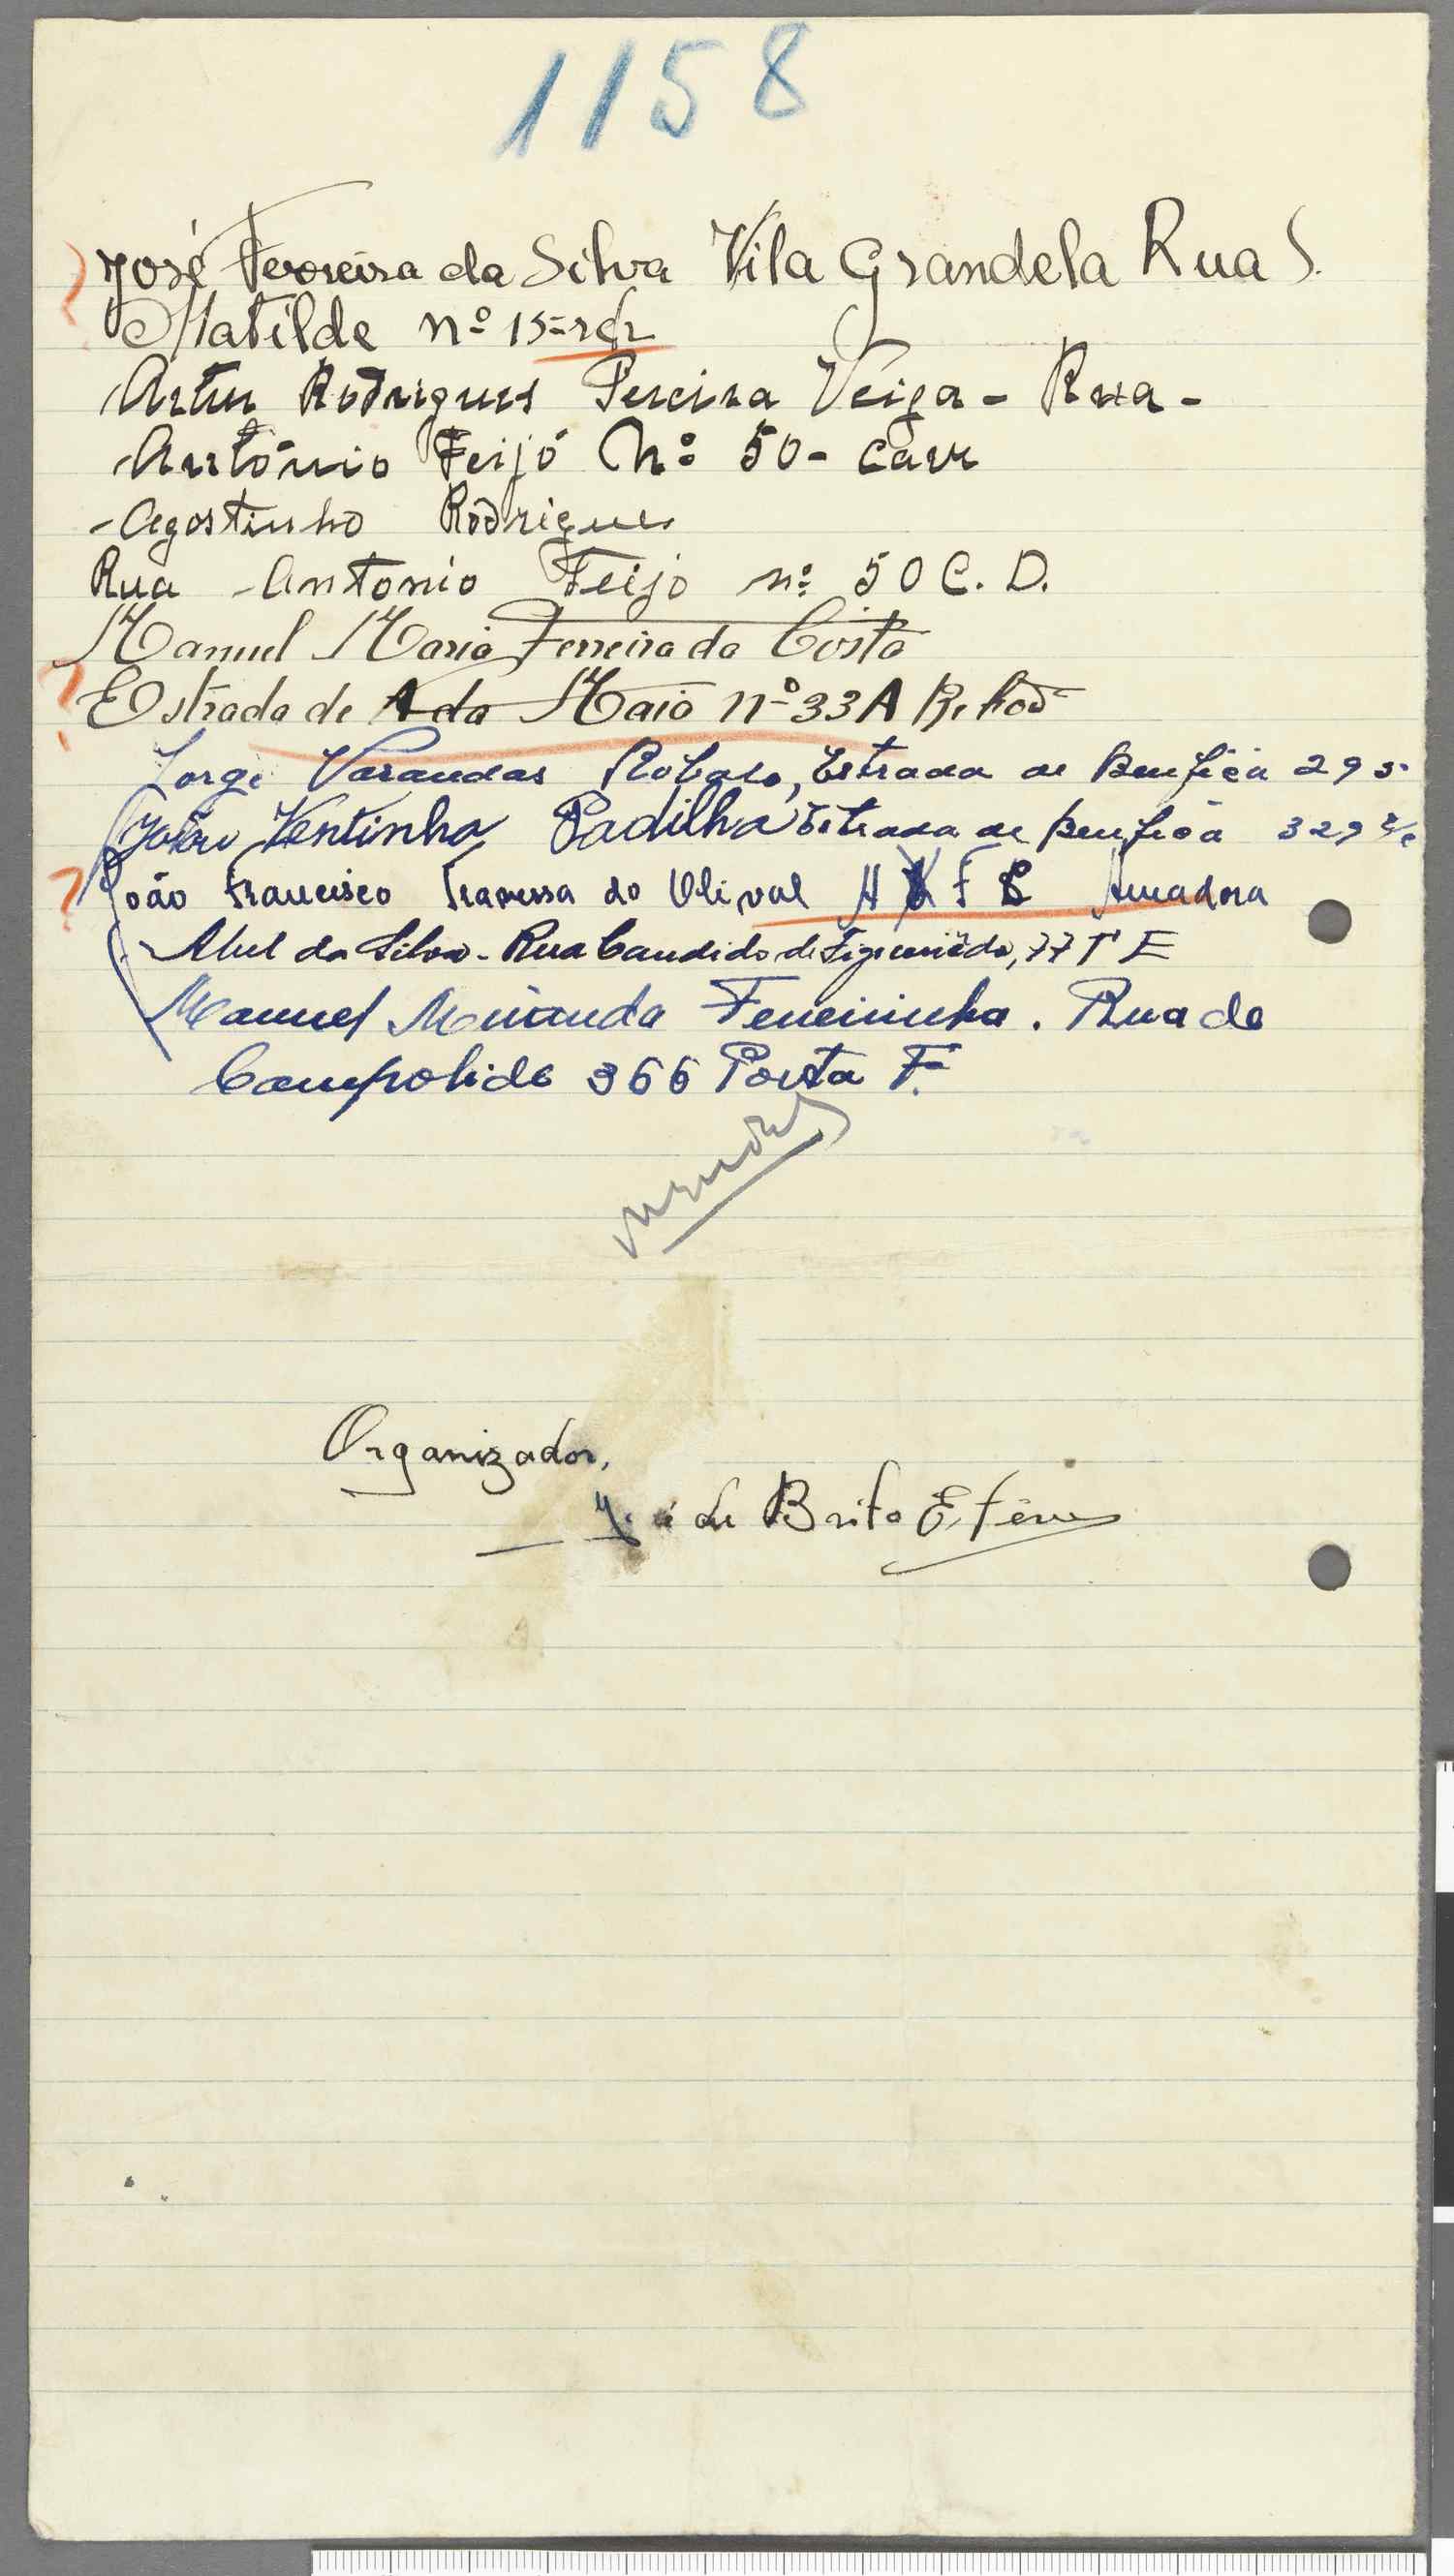 1158
José Ferreira da Silva Vila Grandela Rua S.
Matilde nº 15 = r/c
Artur Rodrigues Pereira Veiga - Rua -
António Feijó Nº 50 - cave
Agostinho Rodrigues
Rua Antonio Feijo nº 50 C. D.
Manuel Maria Ferreira da Costa
Estrada de A da Maia nº 33 A
Jorge Varandas Robalo, Estrada de Benfica 29
João Ventinha Padilha Estrada de Benfica 329
João Francisco Travessa do Olival Amadora
Abel da Silva - Rua Candido de Figueiredo, 77 E
Manuel Miranda Ferreirinha. Rua de
Campolide 366 Porta F.
Organizador,
de Brito Estêves